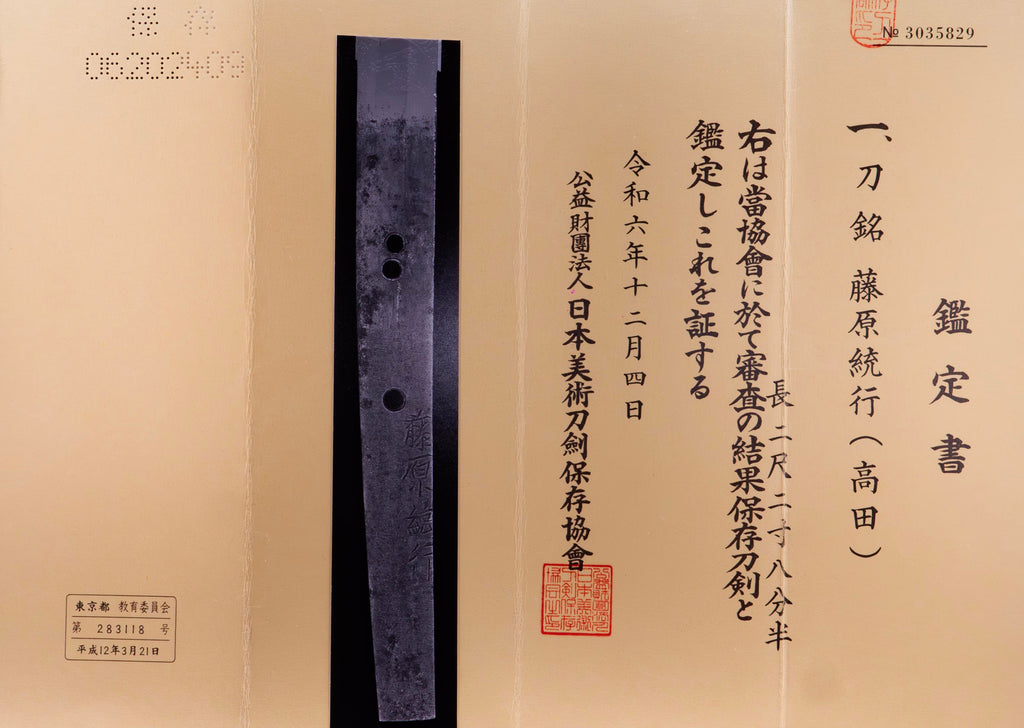 № 3035829
鑑定書
一、刀 銘 藤原統行(高田)
長二尺二寸八分半
右は當協會に於て審査の結果保存刀剣と
鑑定しこれを証する
令和六年十二月四日
公益財團法人日本美術刀劍保存協會
藤原統行
保存
06202409
東京都 教育委員会
第 283118 号
平成12年3月21日